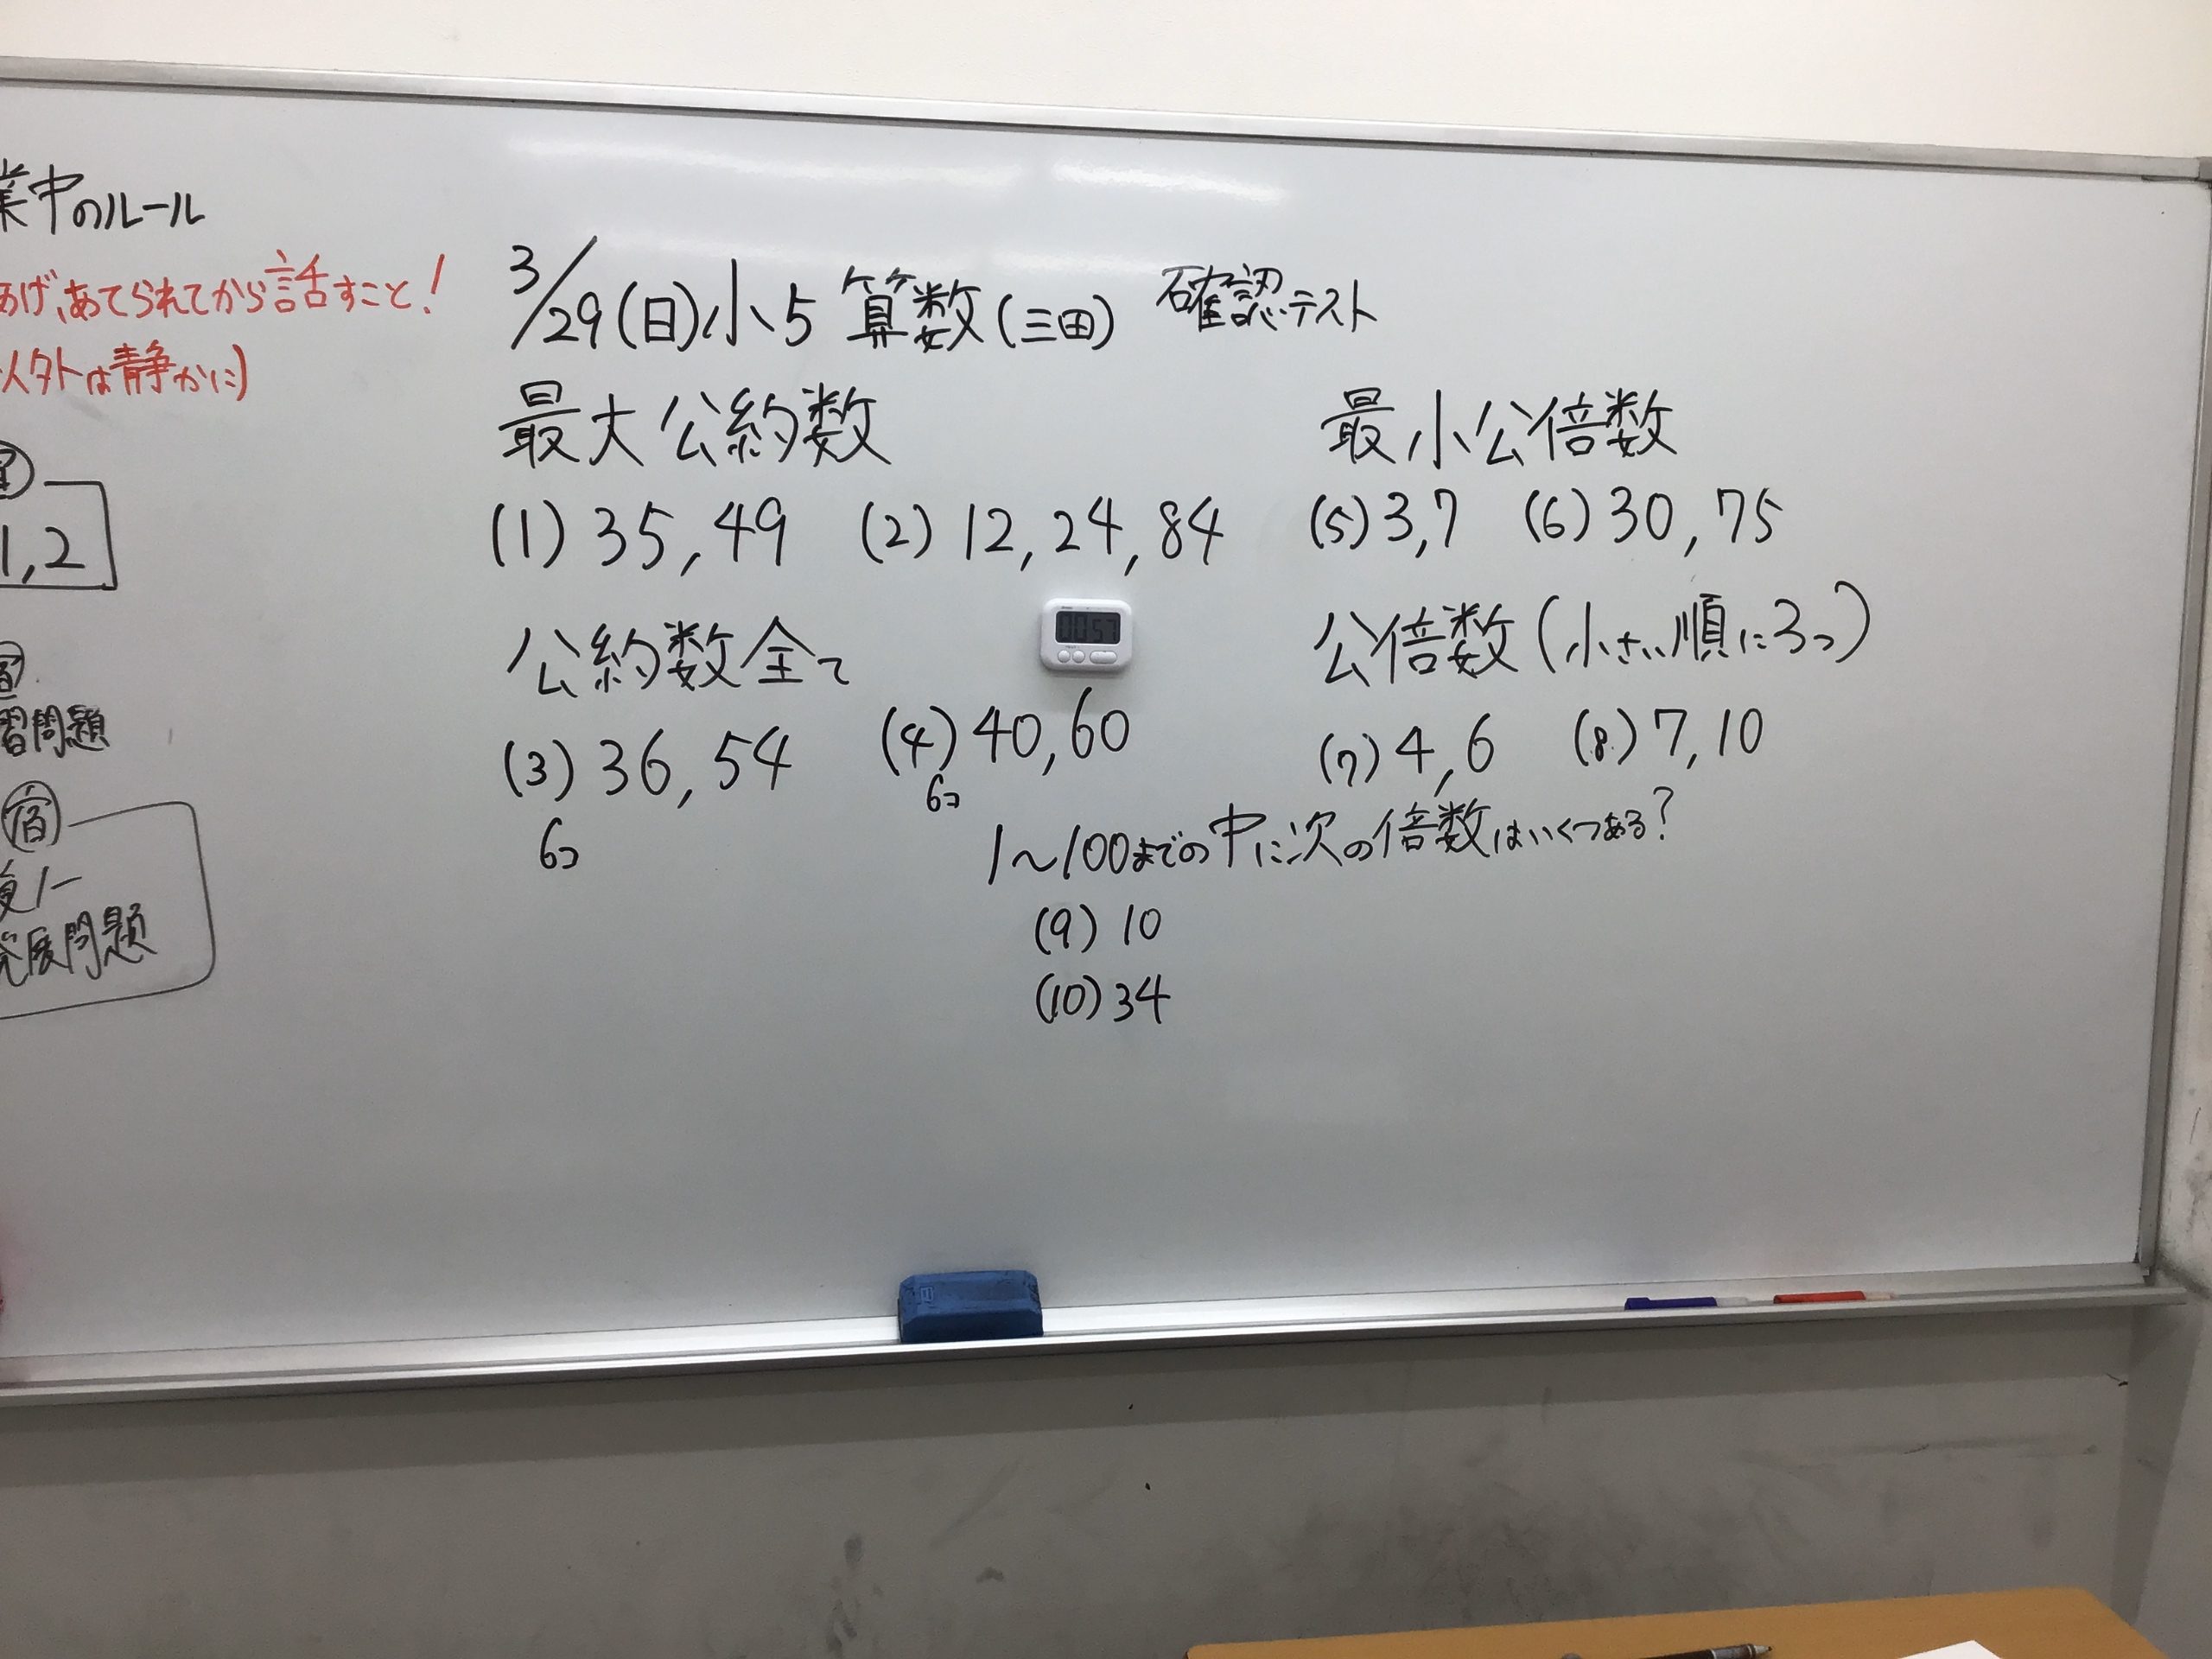 業中のルール
あげ、あてられてから話すこと!
人以外は静かに)
1,2
習問題
宿
発展問題
3/29(日)小5 算数(三田) 確認テスト
最大公約数
(1) 35, 49 (2) 12, 24, 84
公約数全て
(3) 36, 54 (4) 40, 60
6コ 6コ
最小公倍数
(5) 3,7 (6) 30, 75
公倍数(小さい順に3つ)
(7) 4, 6 (8) 7, 10
1〜100までの中に次の倍数はいくつある?
(9) 10
(10) 34
00 57